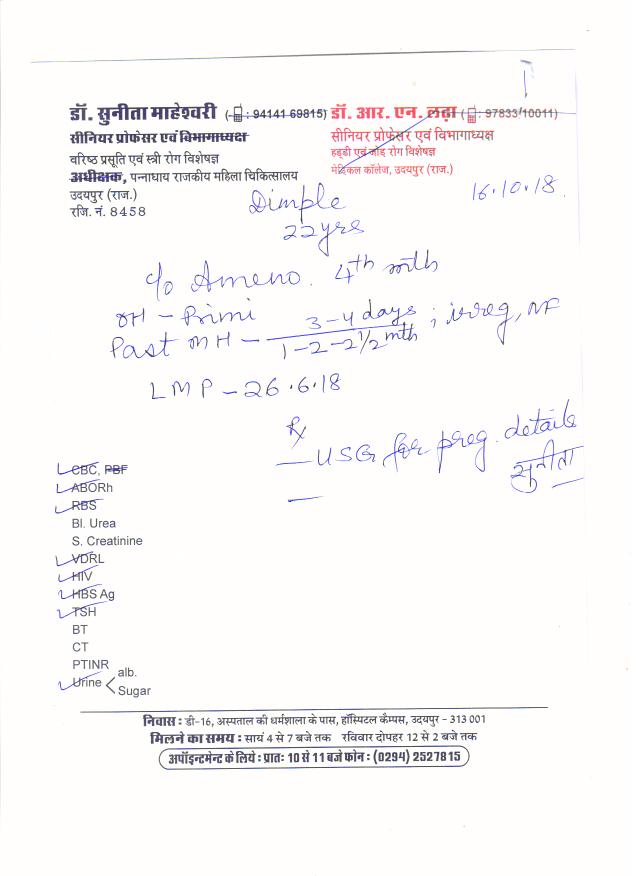 डॉ. सुनीता माहेश्वरी (📱: 94141 69815) डॉ. आर. एन. लढ़ा (📱: 97833/10011)
सीनियर प्रोफेसर एवं विभागाध्यक्ष
वरिष्ठ प्रसूति एवं स्त्री रोग विशेषज्ञ
अधीक्षक, पन्नाधाय राजकीय महिला चिकित्सालय
उदयपुर (राज.)
रजि. नं. 8458
सीनियर प्रोफेसर एवं विभागाध्यक्ष
हड्डी एवं जोड़ रोग विशेषज्ञ
मेडिकल कॉलेज, उदयपुर (राज.)
16.10.18.
Dimple
22yrs
c/o Ameno. 4th mth
OH - Primi
Past MH - 3-4 days ; irreg, NF
1-2-2½ mth
LMP - 26.6.18
Rx
— USG for preg. details
सुनीता
CBC, PBF
ABORh
RBS
Bl. Urea
S. Creatinine
VDRL
HIV
HBS Ag
TSH
BT
CT
PTINR
Urine < alb.
Sugar
निवास : डी-16, अस्पताल की धर्मशाला के पास, हॉस्पिटल कैम्पस, उदयपुर - 313 001
मिलने का समय : सायं 4 से 7 बजे तक रविवार दोपहर 12 से 2 बजे तक
अपॉइन्टमेन्ट के लिये : प्रातः 10 से 11 बजे फोन : (0294) 2527815